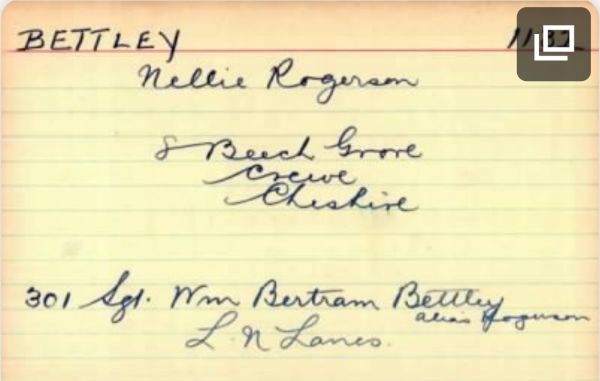 BETTLEY
Nellie Rogerson
8 Beech Grove
Crewe
Cheshire
301 Sgt. Wm Bertram Bettley
alias Rogerson
L. N Lancs.